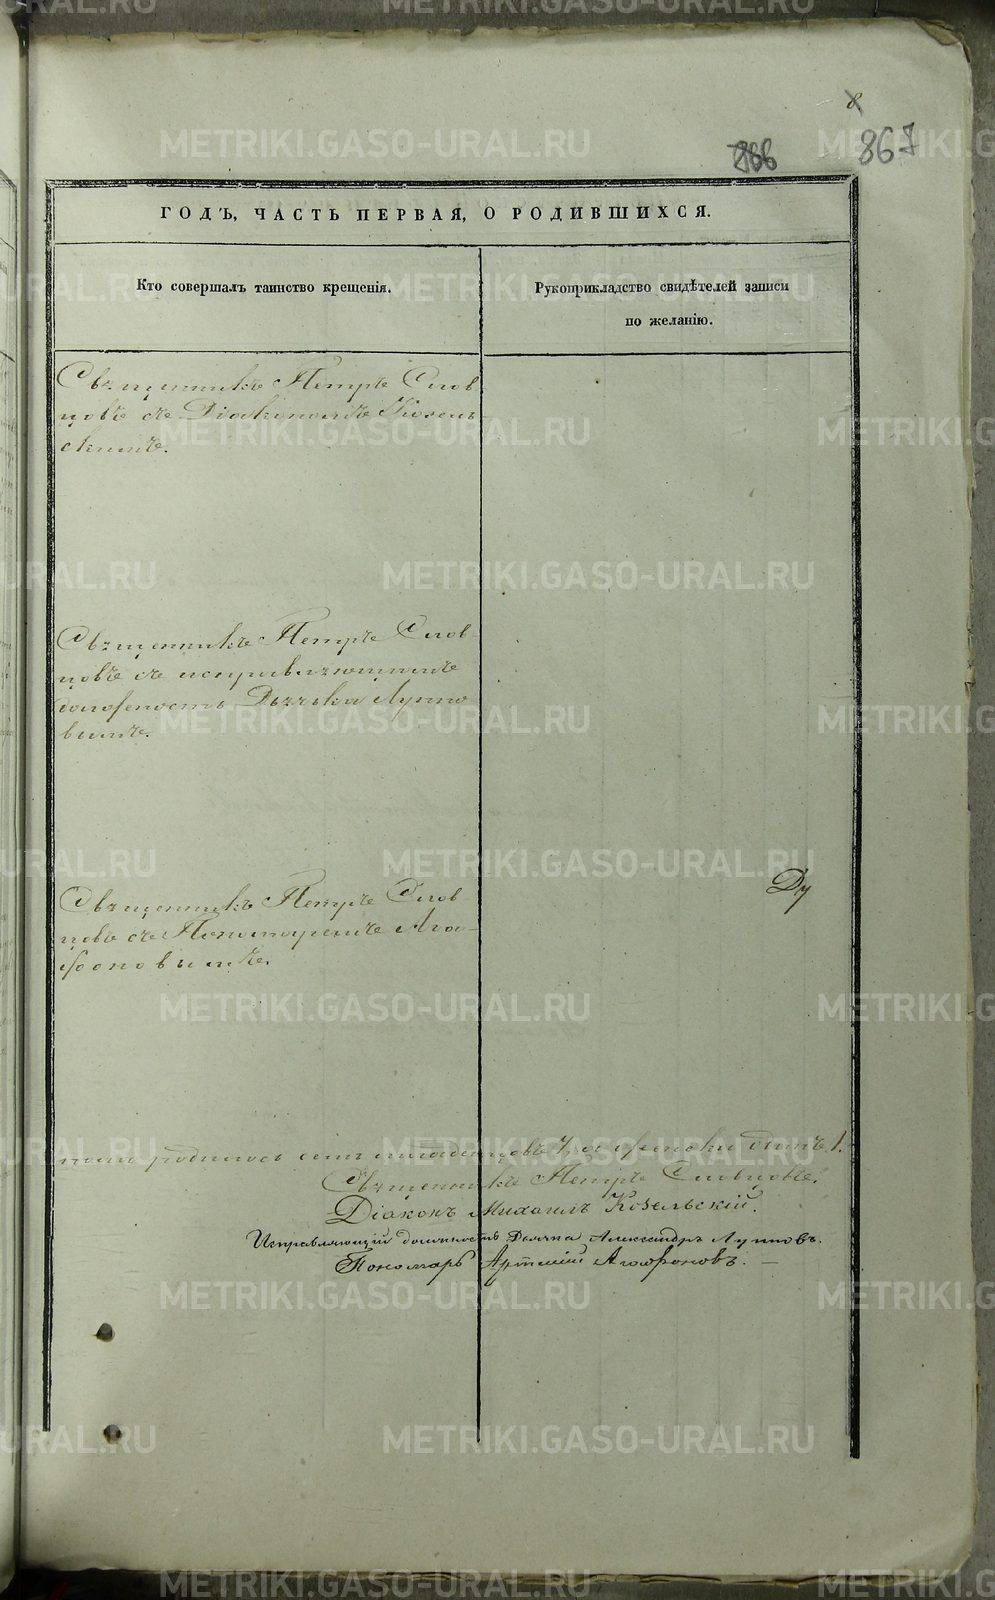 8
866
867
ГОДЪ, ЧАСТЬ ПЕРВАЯ, О РОДИВШИХСЯ.
Кто совершалъ таинство крещенія.
Рукоприкладство свидѣтелей записи
по желанію.
Священникъ Петръ Слов
цовъ съ Діакономъ Козель
скимъ.
Священникъ Петръ Слов
цовъ съ исправляющимъ
должность Дьячка Луппо
вымъ.
Ду
Священникъ Петръ Слов
цовъ съ Пономаремъ Ага-
фоновымъ.
родилось семь младенцовъ 7, а одинъ 1.
Священникъ Петръ Словцовъ.
Діаконъ Михаилъ Козельскій.
Исправляющій должность Дьячка Александръ Лупповъ.
Пономарь Артемій Агафоновъ. —
METRIKI.GASO-URAL.RU